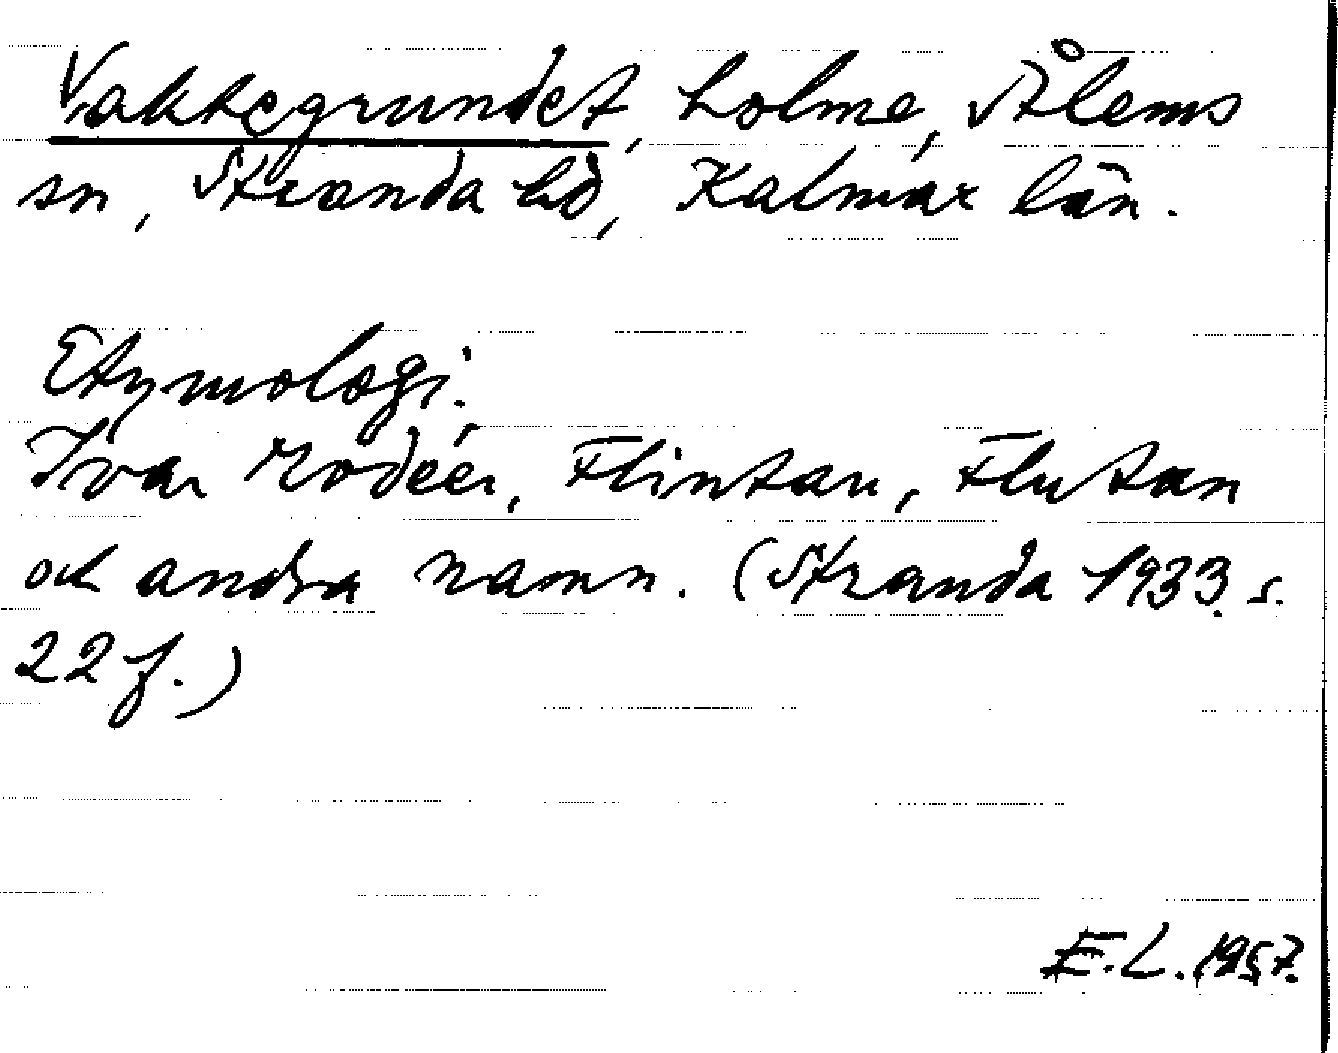 Vaktegrundet, holme, Ålems
sn, Stranda hd, Kalmar län.
Etymologi.
Ivar Modéer, Flintan, Flutan
och andra namn. (Stranda 1933, s.
22 f.)
E.L. 1957.